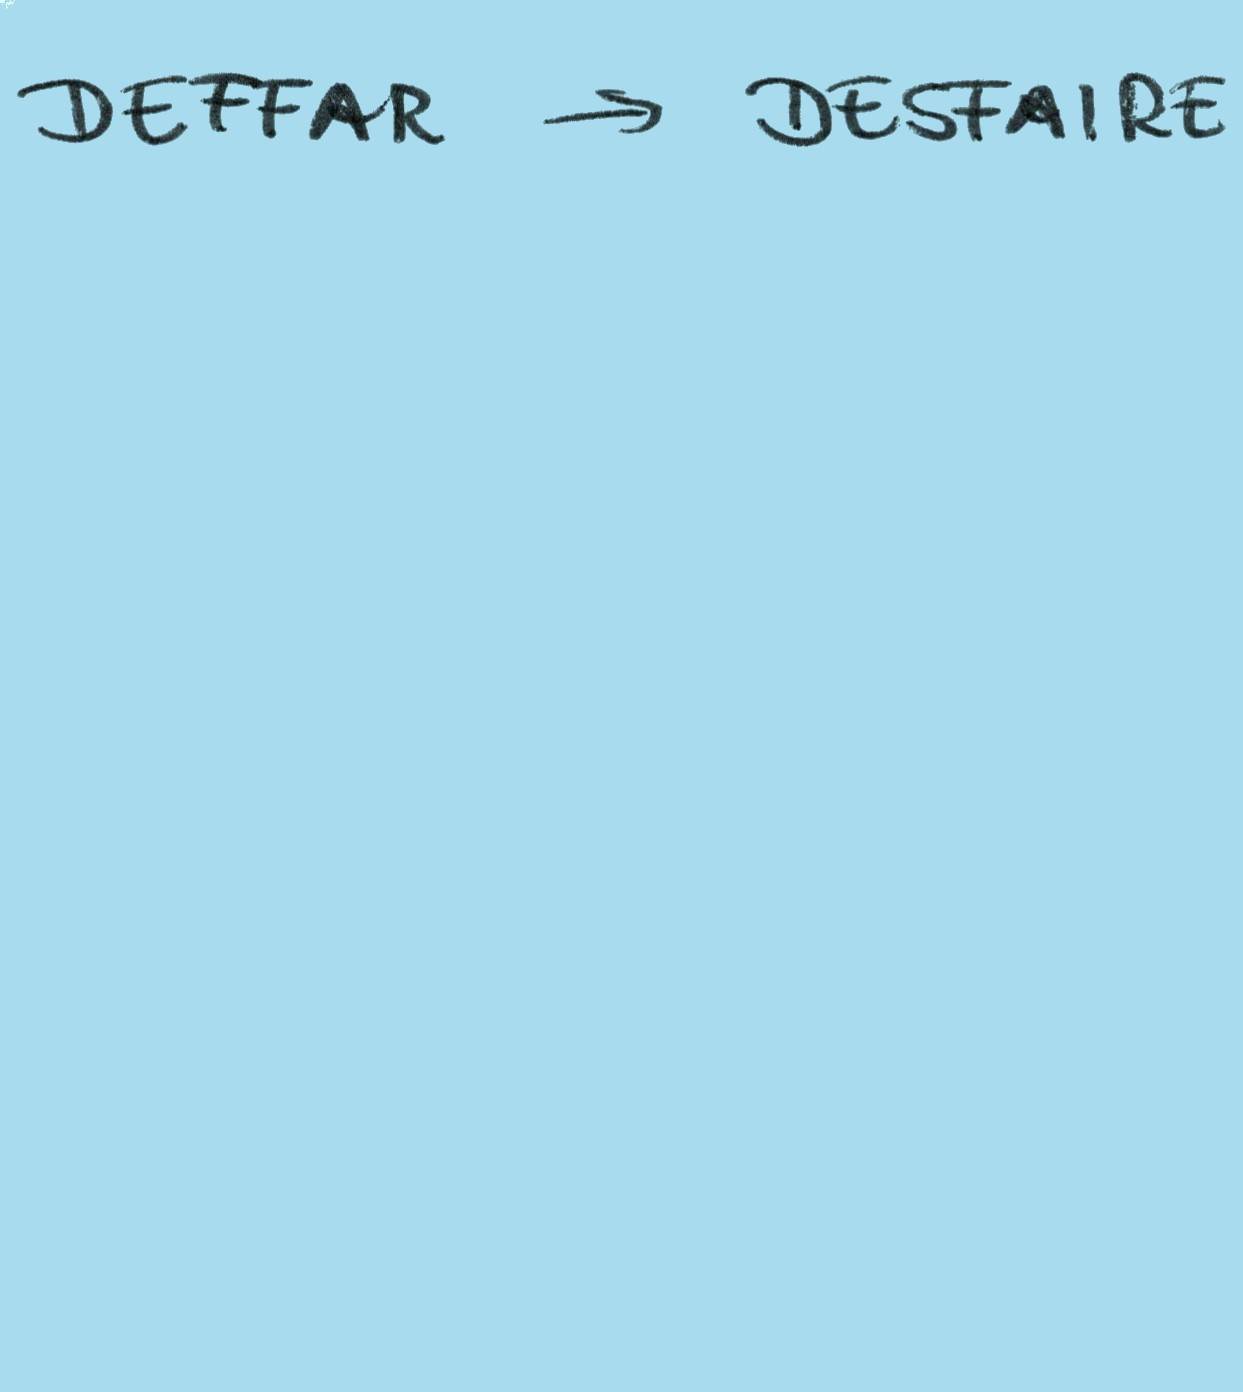 DEFFAR → DESFAIRE